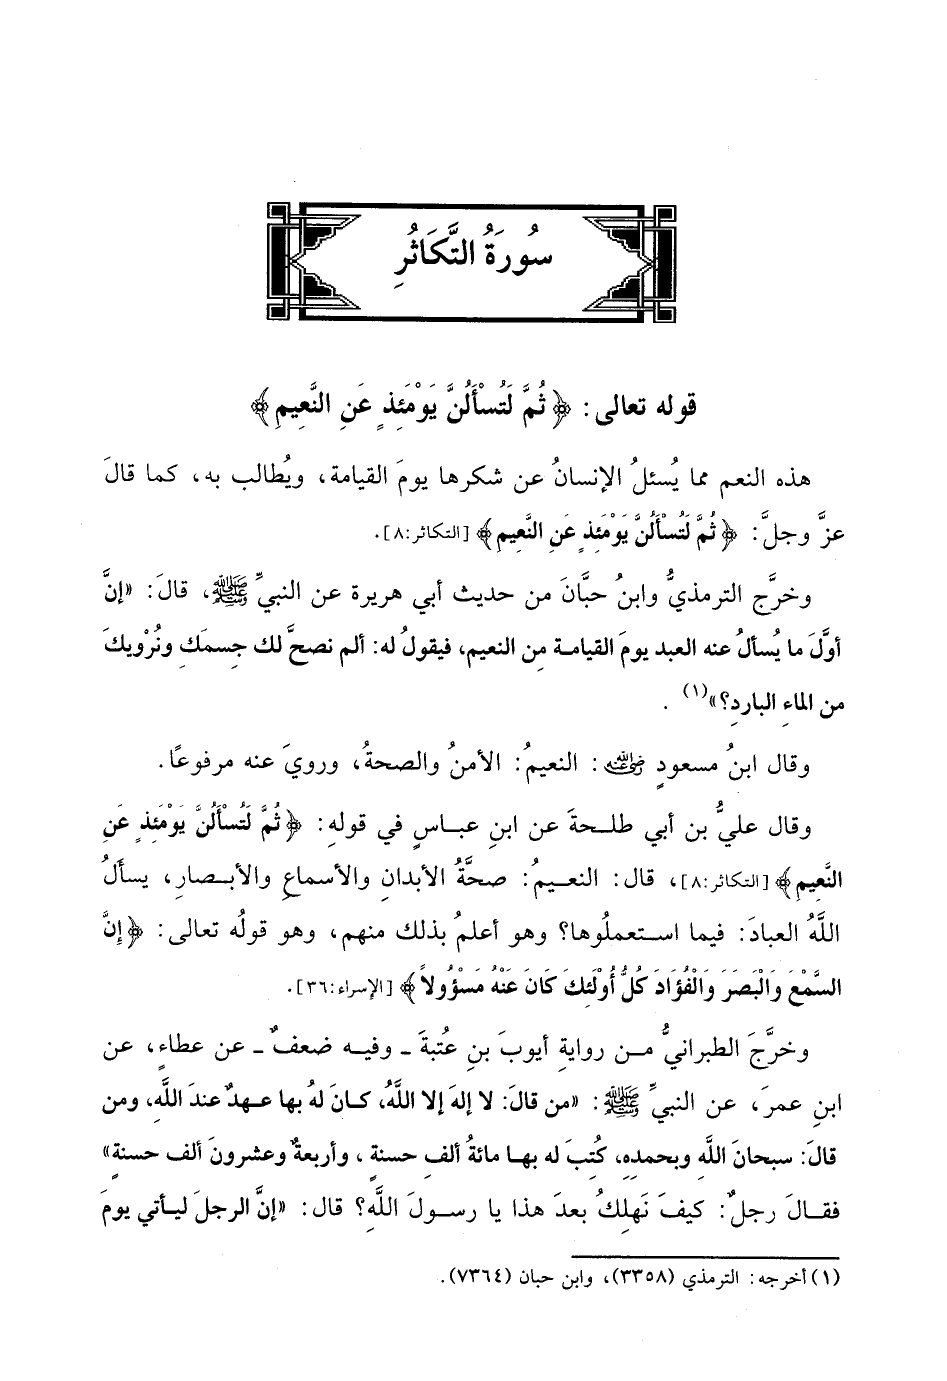 سُورَةُ التَّكَاثُرِ
قوله تعالى: ﴿ثُمَّ لَتُسْأَلُنَّ يَوْمَئِذٍ عَنِ النَّعِيمِ﴾
هذه النعم مما يُسئلُ الإنسانُ عن شكرها يومَ القيامة، ويُطالب به، كما قالَ
عزَّ وجلَّ: ﴿ثُمَّ لَتُسْأَلُنَّ يَوْمَئِذٍ عَنِ النَّعِيمِ﴾ [التكاثر:٨].
وخرَّج الترمذيُّ وابنُ حبَّانَ من حديث أبي هريرة عن النبيِّ ﷺ، قالَ: «إنَّ
أوَّلَ ما يُسألُ عنه العبد يومَ القيامة مِن النعيم، فيقولُ له: ألم نصحَّ لك جِسمَكِ ونُرْويكَ
من الماءِ الباردِ؟»(١) .
وقال ابنُ مسعودٍ رضي الله عنه: النعيمُ: الأمنُ والصحةُ، ورويَ عنه مرفوعًا.
وقال عليُّ بن أبي طلحةَ عن ابنِ عباسٍ في قولهِ: ﴿ثُمَّ لَتُسْأَلُنَّ يَوْمَئِذٍ عَنِ
النَّعِيمِ﴾ [التكاثر:٨]، قال: النعيمُ: صحَّةُ الأبدانِ والأسماعِ والأبصارِ، يسألُ
اللَّهُ العبادَ: فيما استعملُوها؟ وهو أعلمُ بذلك منهم، وهو قولُه تعالى: ﴿إِنَّ
السَّمْعَ وَالْبَصَرَ وَالْفُؤَادَ كُلُّ أُوْلَئِكَ كَانَ عَنْهُ مَسْؤُولاً﴾ [الإسراء:٣٦].
وخرَّجَ الطبرانيُّ من روايةِ أيوبَ بنِ عُتبةَ ـ وفيه ضعفٌ ـ عن عطاءٍ، عن
ابنِ عمرَ، عن النبيِّ ﷺ: «من قالَ: لا إلهَ إلا اللَّهُ، كانَ لهُ بها عهدٌ عندَ اللَّهِ، ومن
قالَ: سبحانَ اللَّهِ وبحمدِهِ، كُتِبَ له بها مائةُ ألفِ حسنةٍ ، وأربعةٌ وعشرونَ ألف حسنةٍ»
فقالَ رجلٌ: كيفَ نَهلِكُ بعدَ هذا يا رسولَ اللَّهِ؟ قال: «إنَّ الرجلَ ليأتي يومَ
(١) أخرجه: الترمذي (٣٣٥٨)، وابن حبان (٧٣٦٤).